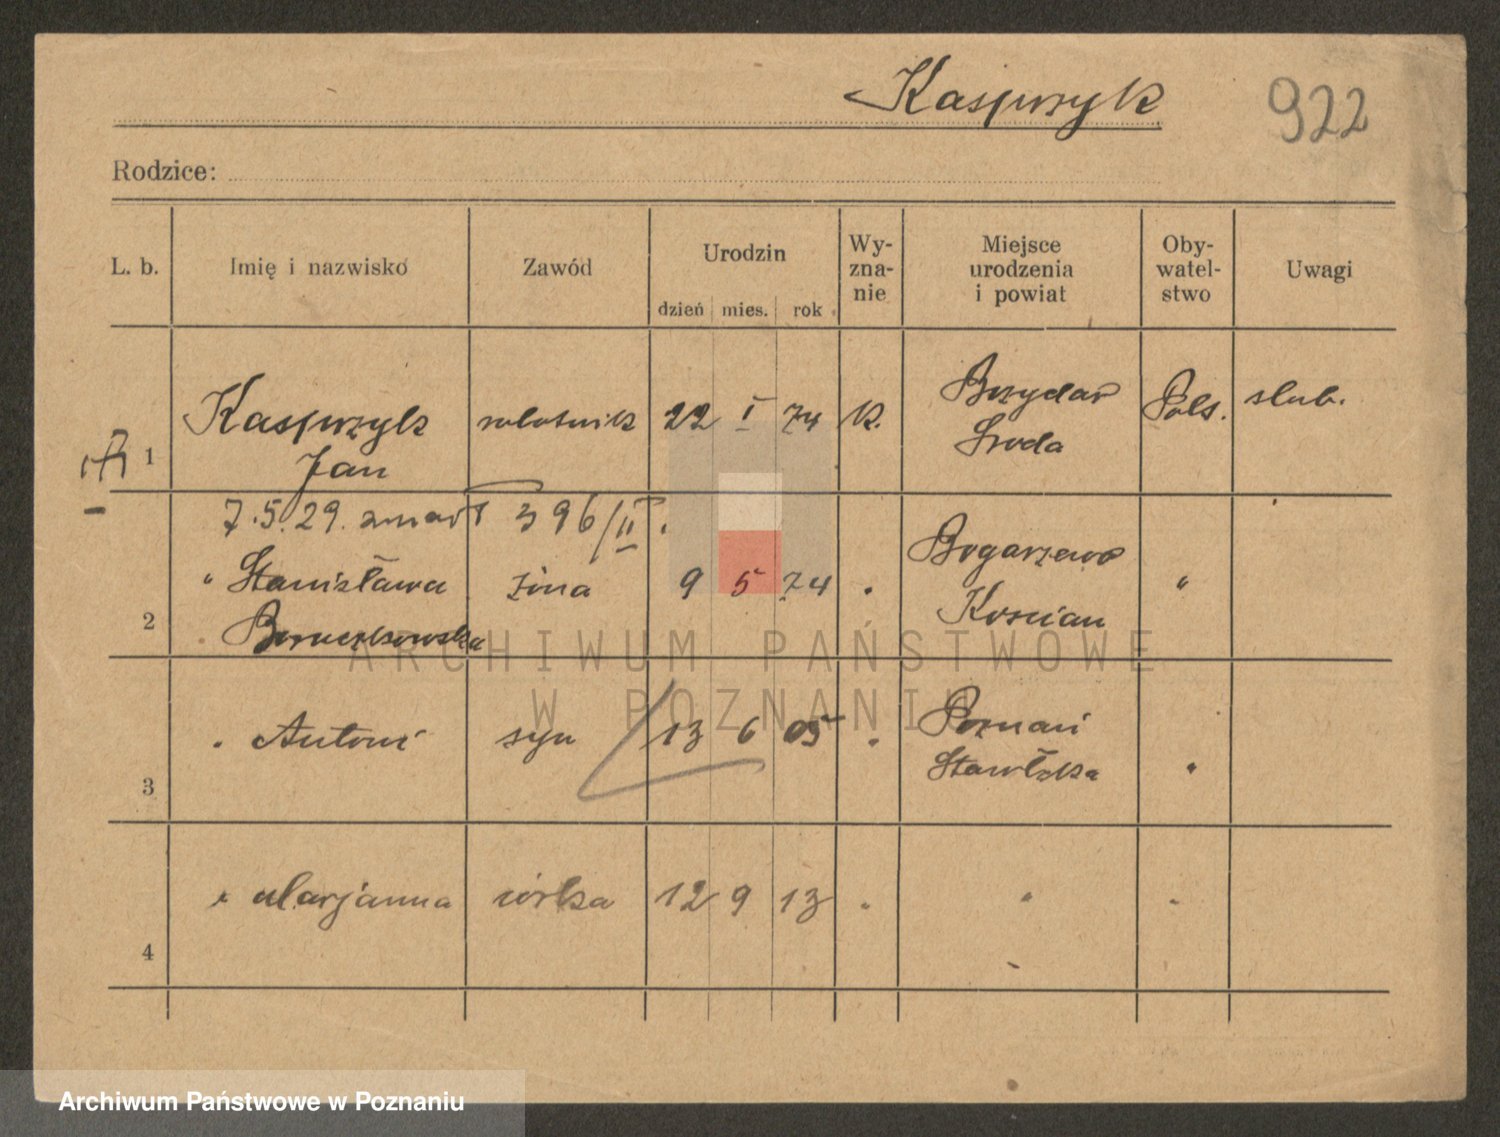 Kasprzyk
922
Rodzice:
L. b. Imię i nazwisko Zawód Urodzin dzień mies. rok Wy-zna-nie Miejsce urodzenia i powiat Oby-watel-stwo Uwagi
1 Kasprzyk Jan robotnik 22 I 74 K. Środa Pols. slub.
7.5.29. zmarł 396/II
2 " Stanisława żona 9 5 74 " Kościan "
ARCHIWUM PAŃSTWOWE
W POZNANIU
3 " Antoni syn 13 6 05 " Poznań "
4 " Marjanna córka 12 9 13 " " "
Archiwum Państwowe w Poznaniu